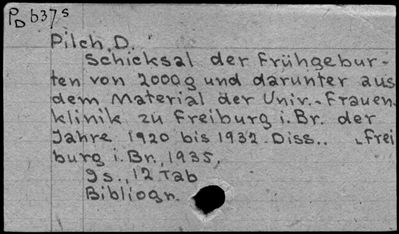 PD b37s
Pilch, D.
Schicksal der Frühgebur-
ten von 2000g und darunter aus
dem Material der Univ.-Frauen-
klinik zu Freiburg i. Br. der
Jahre 1920 bis 1932. Diss.. Frei
burg i. Br., 1935.
9s., 12 Tab
Bibliogr.